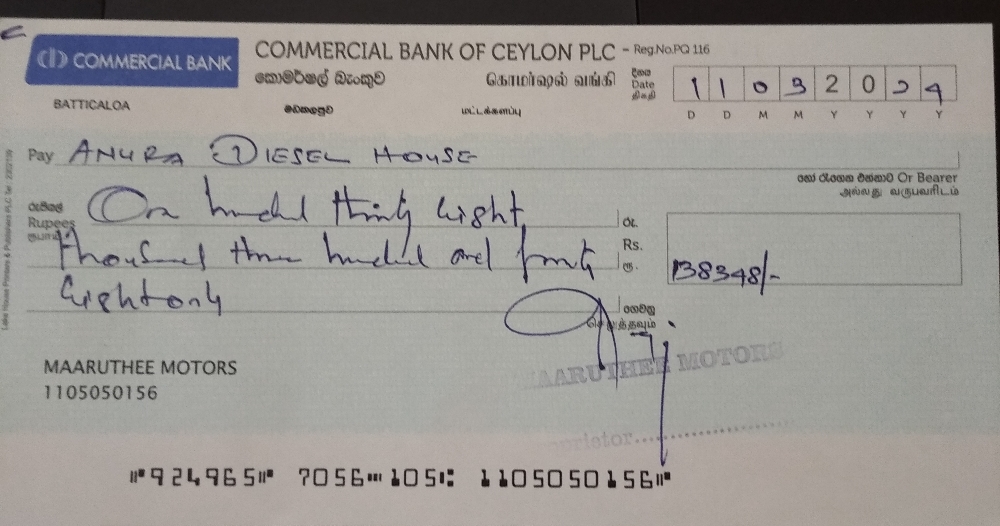 COMMERCIAL BANK
COMMERCIAL BANK OF CEYLON PLC - Reg.No.PQ 116
කොමර්ෂල් බැංකුව கொமர்ஷல் வங்கி
BATTICALOA මඩකලපුව மட்டக்களப்பு
දිනය
Date
திகதி
1 1 0 3 2 0 2 4
D D M M Y Y Y Y
Pay ANURA DIESEL HOUSE
හෝ රැගෙන එන්නාට Or Bearer
அல்லது வருபவரிடம்
රුපියල්
Rupees
ரூபாய்
One hundred thirty Eight
Thousand three hundred and forty
Eight only
රු.
Rs.
ரூ.
138348/-
ගෙවනු
செலுத்தவும்
MAARUTHEE MOTORS
1105050156
MAARUTHEE MOTORS
Proprietor
⑈924965⑈ 7056⑉105⑆ 1105050156⑈